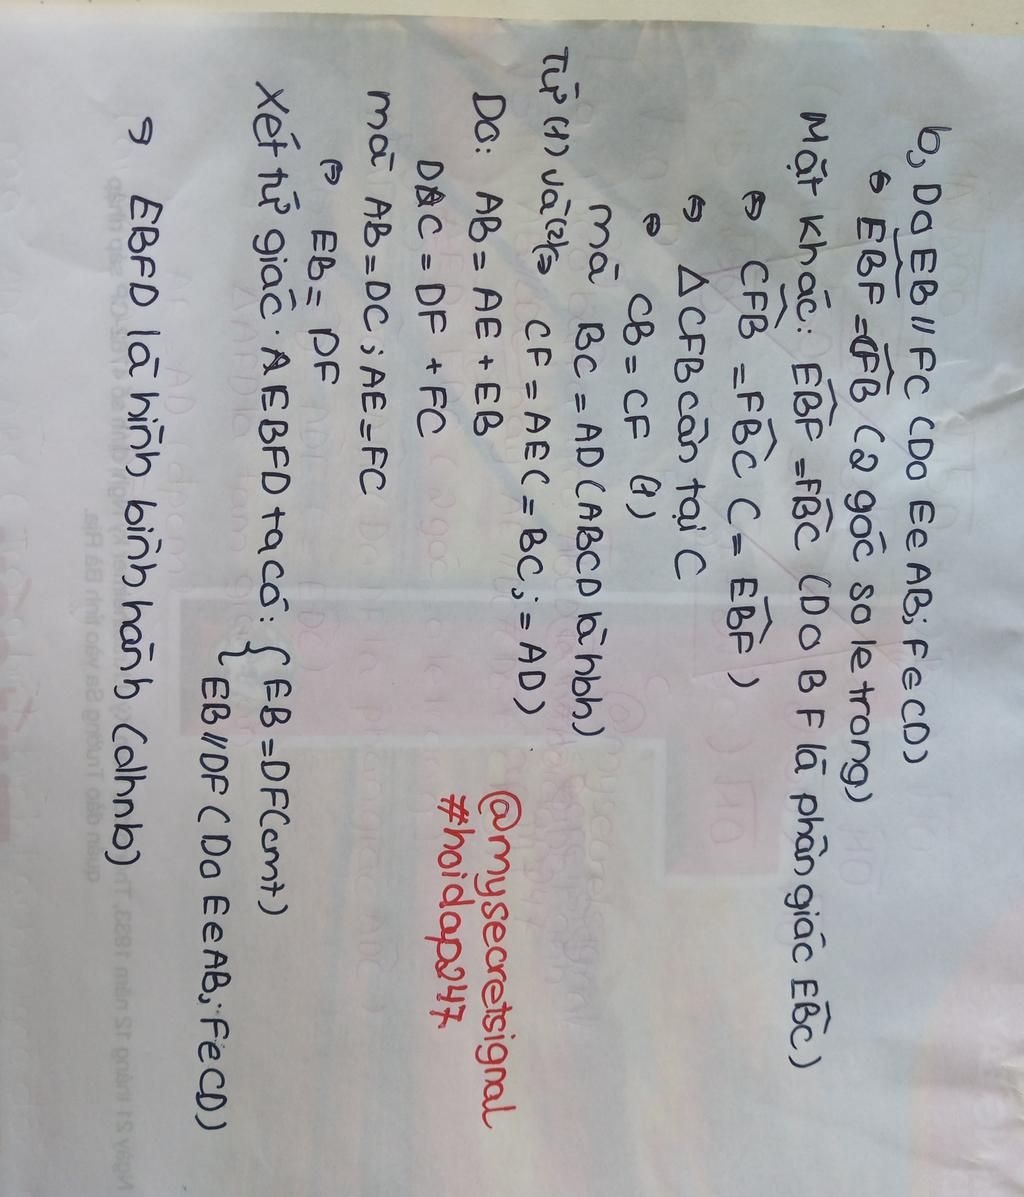 b, Do EB // FC (Do E∈AB; F∈CD)
⇒ EBF = CFB (2 góc so le trong)
Mặt khác: EBF = FBC (Do BF là phân giác EBC)
⇒ CFB = FBC (= EBF)
⇒ ΔCFB cân tại C
⇒ CB = CF (1)
mà BC = AD (ABCD là hbh)
Từ (1) và (2) ⇒ CF = AE (= BC; = AD)
Do: AB = AE + EB
DC = DF + FC
mà AB = DC; AE = FC
⇒ EB = DF
Xét tứ giác: EBFD ta có: { EB = DF (cmt)
EB // DF (Do E∈AB; F∈CD)
⇒ EBFD là hình bình hành (dhnb)
@mysecretsignal
#hoidap247